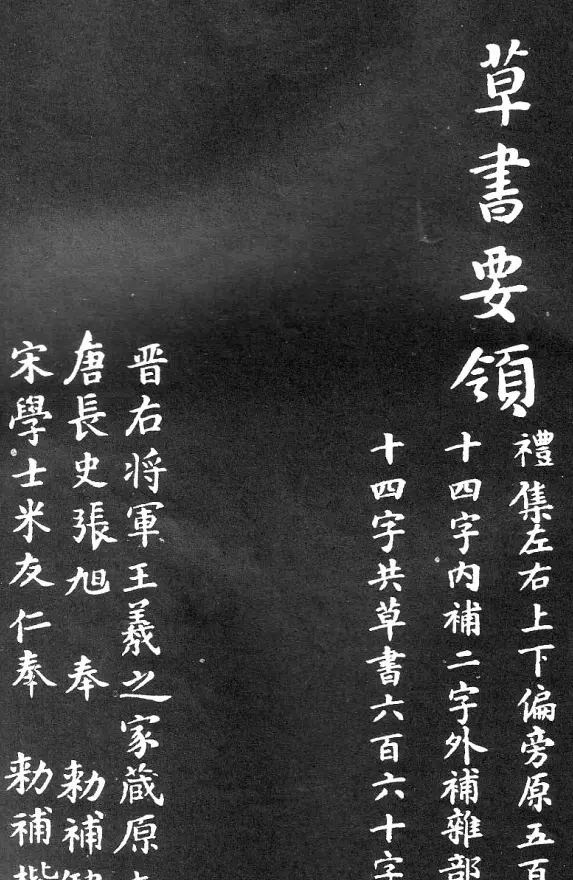 草書要領
禮集左右上下偏旁原五百
十四字内補二字外補雜部
十四字共草書六百六十字
晋右将軍王羲之家蔵原
唐長史張旭 奉 勅補
宋學士米友仁奉 勅補